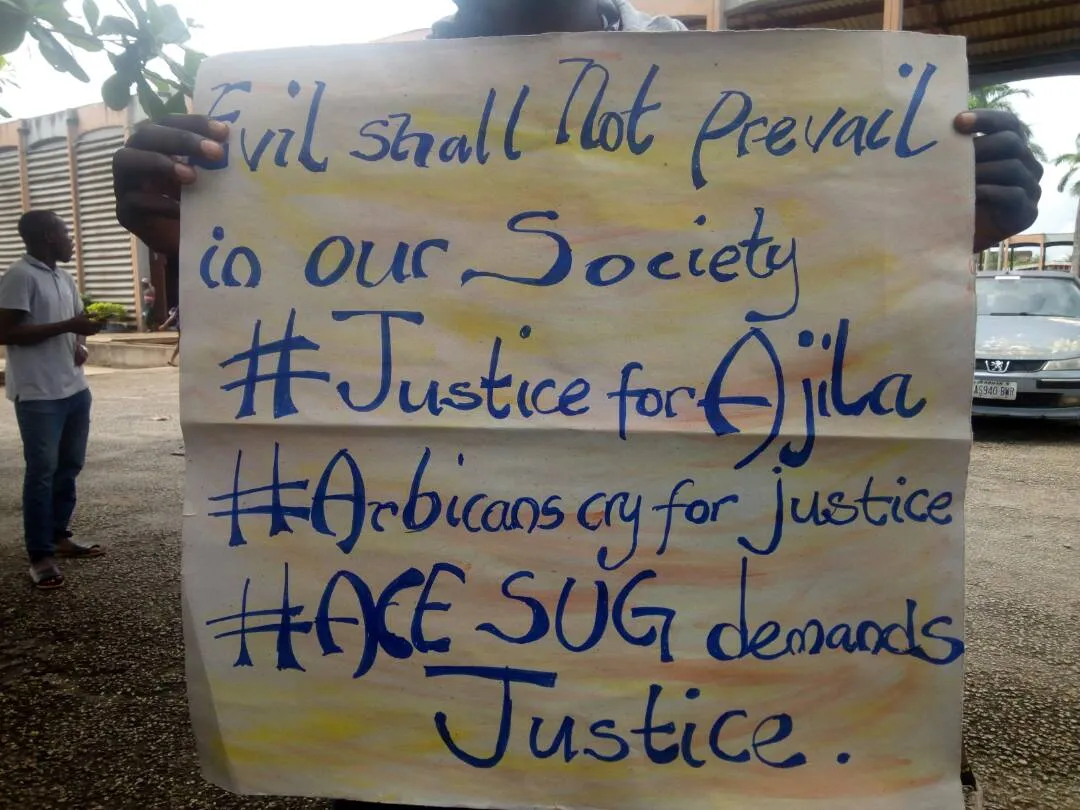 Evil shall Not Prevail
in our Society
#Justice for Ajila
#Arbicans cry for justice
#ACE SUG demands
Justice.